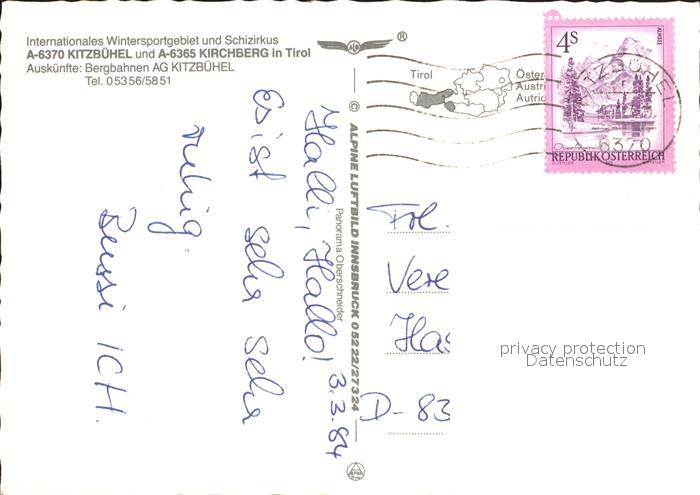 Internationales Wintersportgebiet und Schizirkus
A-6370 KITZBÜHEL und A-6365 KIRCHBERG in Tirol
Auskünfte: Bergbahnen AG KITZBÜHEL
Tel. 05356/5851
®
Tirol
Öster
Austri
Autric
4S
ALMSEE
REPUBLIK ÖSTERREICH
KITZBÜHEL
A-6370
© ALPINE LUFTBILD INNSBRUCK 05222/27324
Panorama Oberschneider
3.3.84
Halli, Hallo!
Es ist sehr sehr
ruhig.
Bussi ICH.
Frl.
Vere
Has
D-83
privacy protection
Datenschutz